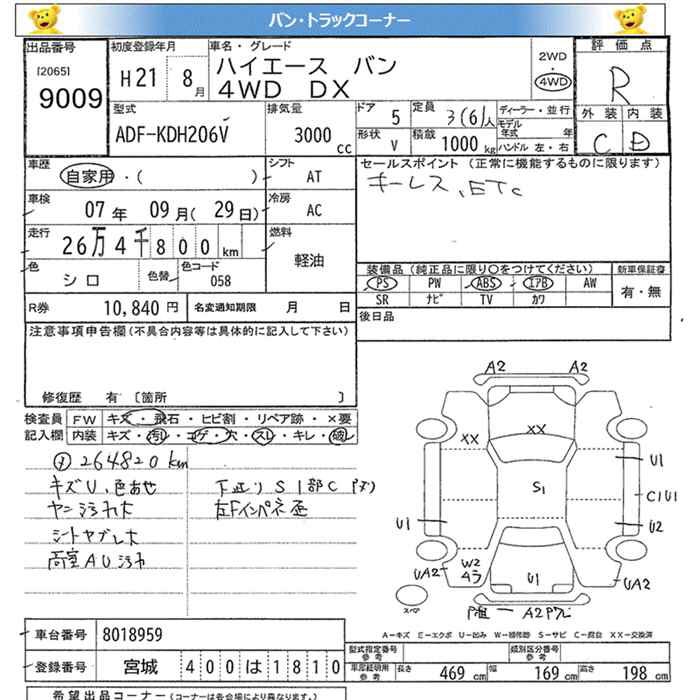 バン・トラックコーナー
出品番号
[2065]
9009
初度登録年月
H21 8月
車名・グレード
ハイエース バン
4WD DX
2WD
・
4WD
評価点
R
外装 内装
C D
型式
ADF-KDH206V
排気量
3000 cc
ドア 5
定員 3(6)人
ディーラー・並行
モデル年式 年
形状 V
積載 1000 kg
ハンドル 左・右
車歴
自家用・( )
シフト AT
車検
07年 09月(29日)
冷房 AC
走行
26万4千800km
燃料 軽油
色 シロ
色替
色コード 058
R券 10,840円
名変通知期限 月 日
セールスポイント (正常に機能するものに限ります)
キーレス、ETC
装備品(純正品に限り○をつけてください)
PS PW ABS エアB AW
SR ナビ TV カワ
新車保証書
有・無
後日品
注意事項申告欄(不具合内容等は具体的に記入して下さい)
修復歴 有 〔箇所 〕
検査員記入欄
FW キズ・飛石・ヒビ割・リペア跡・×要
内装 キズ・汚レ・コゲ・穴・スレ・キレ・破レ
264820km
キズU、色あせ
ヤニ汚れ大
シートヤブレ大
荷室AU汚れ
下廻りS1部C
左Fインパネ歪
A2 A2
XX XX
S1
U1
C1U1
U1
U2
UA2
W2
4ラ
U1
UA2
スペア
A2
A-キズ E-エクボ U-凹み W-補修跡 S-サビ C-腐食 XX-交換済
車台番号 8018959
登録番号 宮城 400 は 1810
型式指定番号 参考
類別区分番号 参考
車庫証明用 参考
長さ 469 cm
幅 169 cm
高さ 198 cm
希望出品コーナー(コーナーは各会場により異なります)